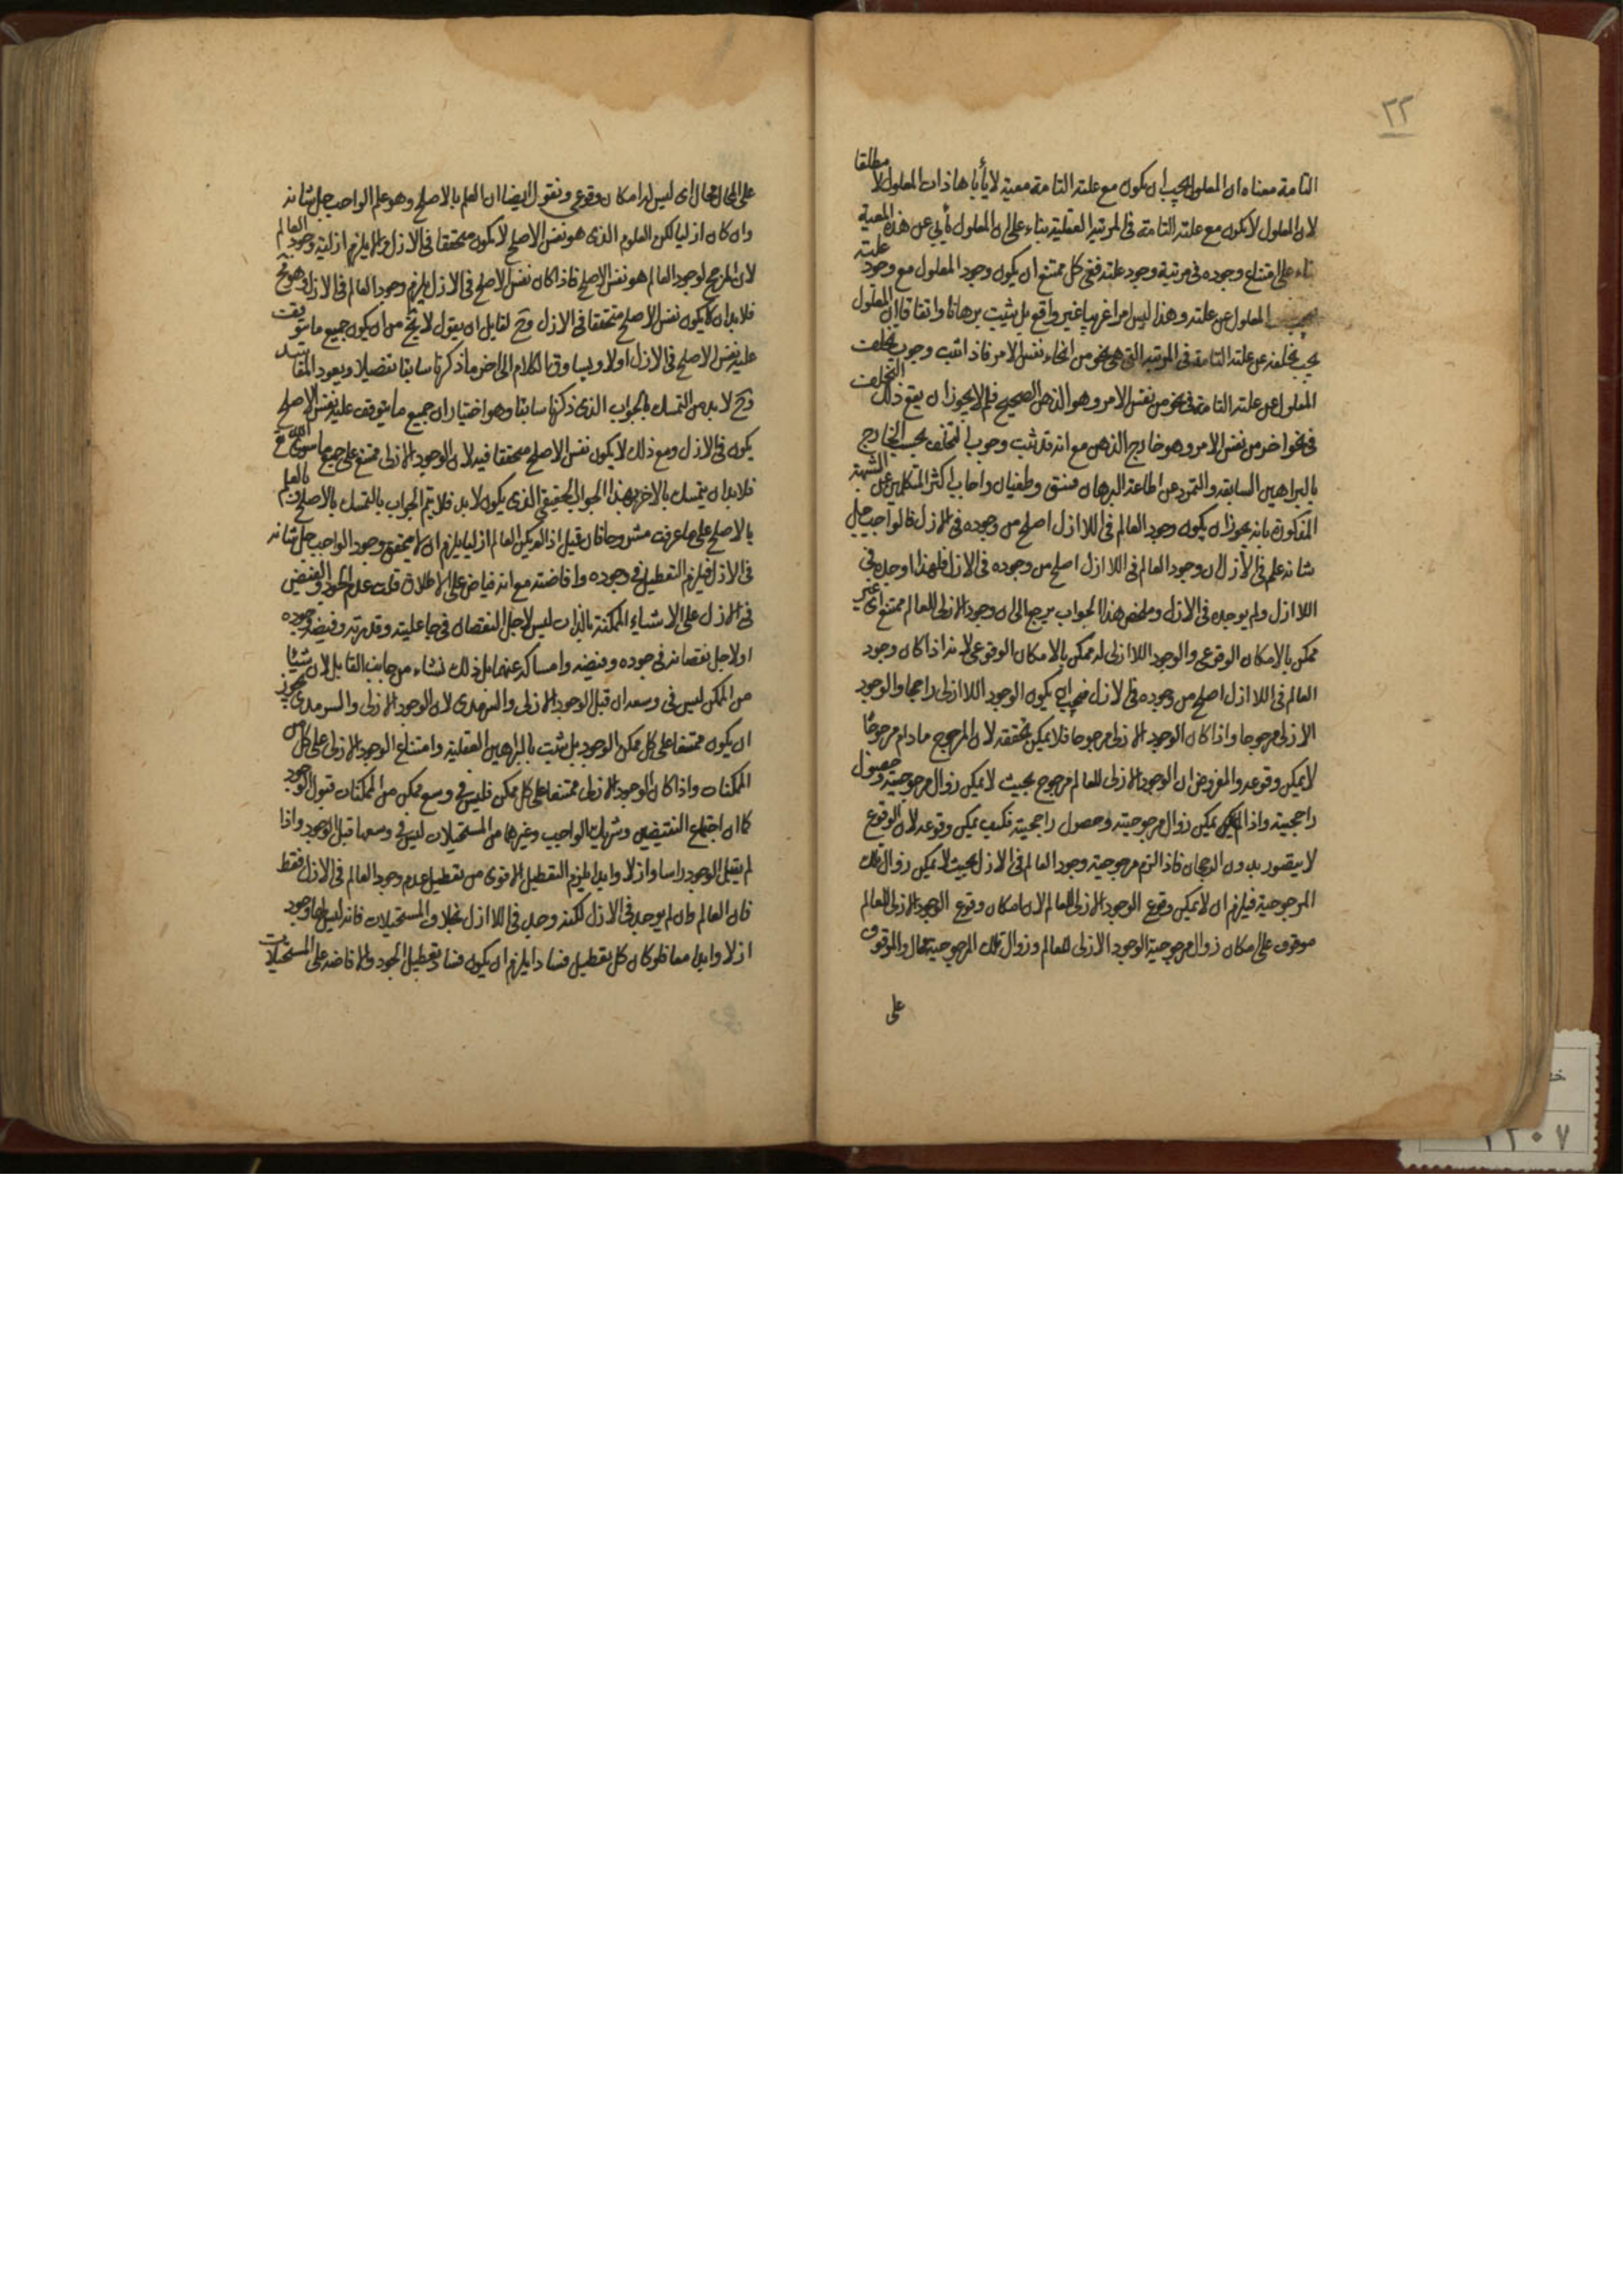 ٢٢
التامة معناه ان المعلول يجب ان يكون مع علته التامة معية لا يأباها ذات المعلول لا مطلقا
لان المعلول لا يكون مع علته التامة في المرتبة العقلية بناء على ان المعلول يأبى عن هذه المعية
بناء على امتناع وجوده في مرتبة وجود علته ففي كل ممتنع ان يكون وجود المعلول مع وجود علته
يجب المعلول عن علته وهذا ليس امرا غريبا غير واقع بل يثبت برهانا واتفاقا ان المعلول
يجب تخلفه عن علته التامة في المرتبة التي هي نحو من انحاء نفس الامر فاذا ثبت وجوب تخلف
المعلول عن علته التامة في نحو من نفس الامر وهو الذهن الصحيح فلم لا يجوز ان يقع ذلك التخلف
في نحو اخر من نفس الامر وهو خارج الذهن مع انه قد ثبت وجوب التخلف بحسب الخارج
بالبراهين السابقة والتمرد عن اطاعة البرهان فسق وطغيان واجاب اكثر المتكلمين عن الشبهة
المذكورة بانه يجوز ان يكون وجود العالم في اللاازل اصلح من وجوده في الازل فالواجب جل
شانه علم في الازل ان وجود العالم في اللاازل اصلح من وجوده في الازل فلهذا اوجده في
اللاازل ولم يوجده في الازل وملخص هذا الجواب يرجع الى ان وجود الازلى للعالم ممتنع اى غير
ممكن بالامكان الوقوعى والوجود اللاازلى له ممكن بالامكان الوقوعى لانه اذا كان وجود
العالم في اللاازل اصلح من وجوده في الازل فيجب ان يكون الوجود اللاازلى راجحا والوجود
الازلى مرجوحا واذا كان الوجود الازلى مرجوحا فلا يمكن تحققه لان المرجوح مادام مرجوحا
لا يمكن وقوعه والمفروض ان الوجود الازلى للعالم مرجوح بحيث لا يمكن زوال مرجوحيته وحصول
راجحيته واذا لم يمكن زوال مرجوحيته وحصول راجحيته فكيف يمكن وقوعه لان الوقوع
لا يتصور بدون الرجحان فاذا لزم مرجوحية وجود العالم في الازل بحيث لا يمكن زوال تلك
المرجوحية فيلزم ان لا يمكن وقوع الوجود الازلى للعالم لان امكان وقوع الوجود الازلى للعالم
موقوف على امكان زوال مرجوحية الوجود الازلى للعالم وزوال تلك المرجوحية محال والموقوف
على
على المحال محال اى ليس له امكان وقوعى ونقول ايضا ان العلم بالاصلح وهو علم الواجب جل شانه
وان كان ازليا لكن المعلوم الذى هو نفس الاصلح لا يكون متحققا في الازل والا يلزم ازلية وجود العالم
لان المرجح لوجود العالم هو نفس الاصلح فاذا كان نفس الاصلح في الازل يلزم وجود العالم في الازل وهو مح
فلا بد ان لا يكون نفس الاصلح متحققا في الازل وح لقايل ان يقول لا يخ من ان يكون جميع ما يتوقف
عليه نفس الاصلح في الازل اولا ويساوق الكلام الى اخر ما ذكرنا سابقا تفصيلا ويعود المفاسد
وح لا بد من التمسك بالجواب الذى ذكرنا سابقا وهو اختيار ان جميع ما يتوقف عليه نفس الاصلح
يكون في الازل ومع ذلك لا يكون نفس الاصلح متحققا فيه لان الوجود الازلى ممتنع على جميع ما سوى الله تع
فلا بد ان يتمسك بالاخر بهذا الجواب الحقيقى الذى يكون لا بد فلا يتم الجواب بالتمسك بالاصلح و بالعلم
بالاصلح على ما عرفت مشروحا فان قيل اذا لم يكن العالم ازليا يلزم ان لا يتحقق وجود الواجب جل شانه
في الازل فيلزم التعطيل في وجوده وافاضته مع انه فياض على الاطلاق قلت عدم الجود والفيض
في الازل على الاشياء الممكنة بالذات ليس لاجل النقصان في جاعليته وقدرته وفيضه وجوده
او لاجل نقصانه في جوده وفيضه وامساكه عنهما بل ذلك نشاء من جانب القابل لان شيئا
من الممكن ليس في وسعه ان قبل الوجود الازلى والسرمدى لان الوجود الازلى والسرمدى يجوز
ان يكون ممتنعا على كل ممكن الوجود بل يثبت بالبراهين العقلية وامتناع الوجود الازلى على كل من
الممكنات واذا كان الوجود الازلى ممتنعا على كل ممكن فليس في وسع ممكن من الممكنات قبول الوجود
كما ان اجتماع النقيضين وشريك الواجب وغيرها من المستحيلات ليس في وسعها قبل الوجود واذا
لم يقبل الوجود راسا وازلا وابدا يلزم التعطيل الاقوى من تعطيل عدم وجود العالم في الازل فقط
فان العالم وان لم يوجد في الازل لكنه وجد في اللاازل بخلاف المستحيلات فانه ليس لها وجود
ازلا وابدا معا فلو كان كل تعطيل فسادا يلزم ان يكون فساد تعطيل الجود والافاضه على المستحيلات
٢٢٠٧